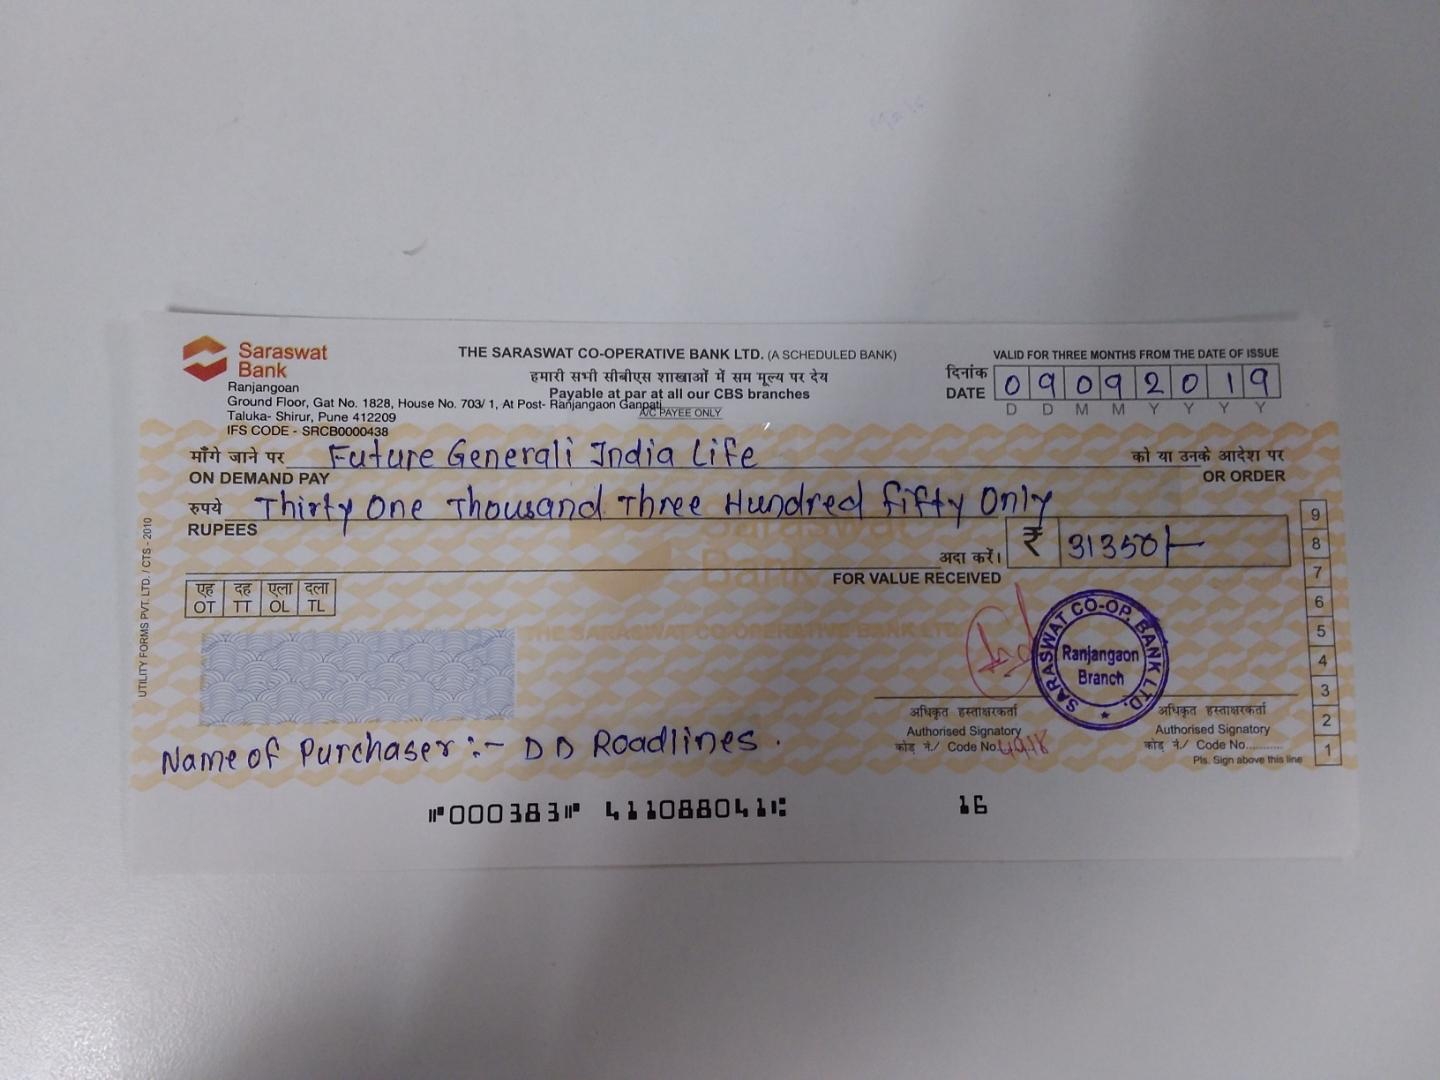 Saraswat
Bank
Ranjangoan
Ground Floor, Gat No. 1828, House No. 703/ 1, At Post- Ranjangaon Ganpati
Taluka- Shirur, Pune 412209
IFS CODE - SRCB0000438
THE SARASWAT CO-OPERATIVE BANK LTD. (A SCHEDULED BANK)
हमारी सभी सीबीएस शाखाओं में सम मूल्य पर देय
Payable at par at all our CBS branches
A/C PAYEE ONLY
VALID FOR THREE MONTHS FROM THE DATE OF ISSUE
दिनांक
DATE 0 9 0 9 2 0 1 9
D D M M Y Y Y Y
माँगे जाने पर Future Generali India Life को या उनके आदेश पर
ON DEMAND PAY OR ORDER
रुपये Thirty One Thousand Three Hundred Fifty Only
RUPEES
अदा करें। ₹ 31350/-
FOR VALUE RECEIVED
एह दह एला दला
OT TT OL TL
Saraswat
Bank
THE SARASWAT CO-OPERATIVE BANK LTD.
SARASWAT CO-OP. BANK LTD.
Ranjangaon
Branch
अधिकृत हस्ताक्षरकर्ता
Authorised Signatory
कोड नं./ Code No.
अधिकृत हस्ताक्षरकर्ता
Authorised Signatory
कोड नं./ Code No...........
Pls. Sign above this line
9
8
7
6
5
4
3
2
1
UTILITY FORMS PVT. LTD. / CTS - 2010
Name of Purchaser :- D D Roadlines.
⑈000383⑈ 411088041⑆ 16